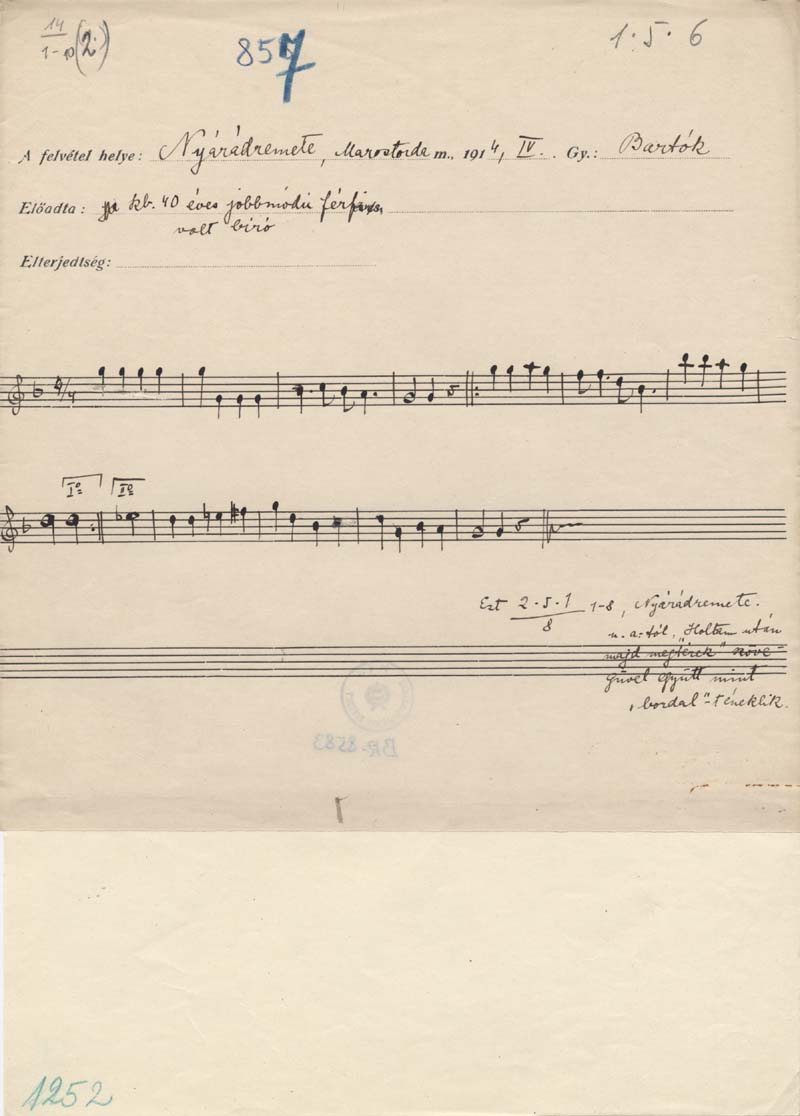 14
1-10 (2.)
857
1·5·6
A felvétel helye: Nyárádremete, Marostorda m., 1914, IV. Gy.: Bartók
Előadta: kb. 40 éves jobbmódú férfi
volt biró
Elterjedtség:
2/4
I⁰ II⁰
Ezt 2·5·1 1-8, Nyárádremete.
8
u. a.-tól, „Holtam után
majd megtérek" szöve-
gűvel együtt mint
„bordal"-t éneklik.
BR-8583
1252